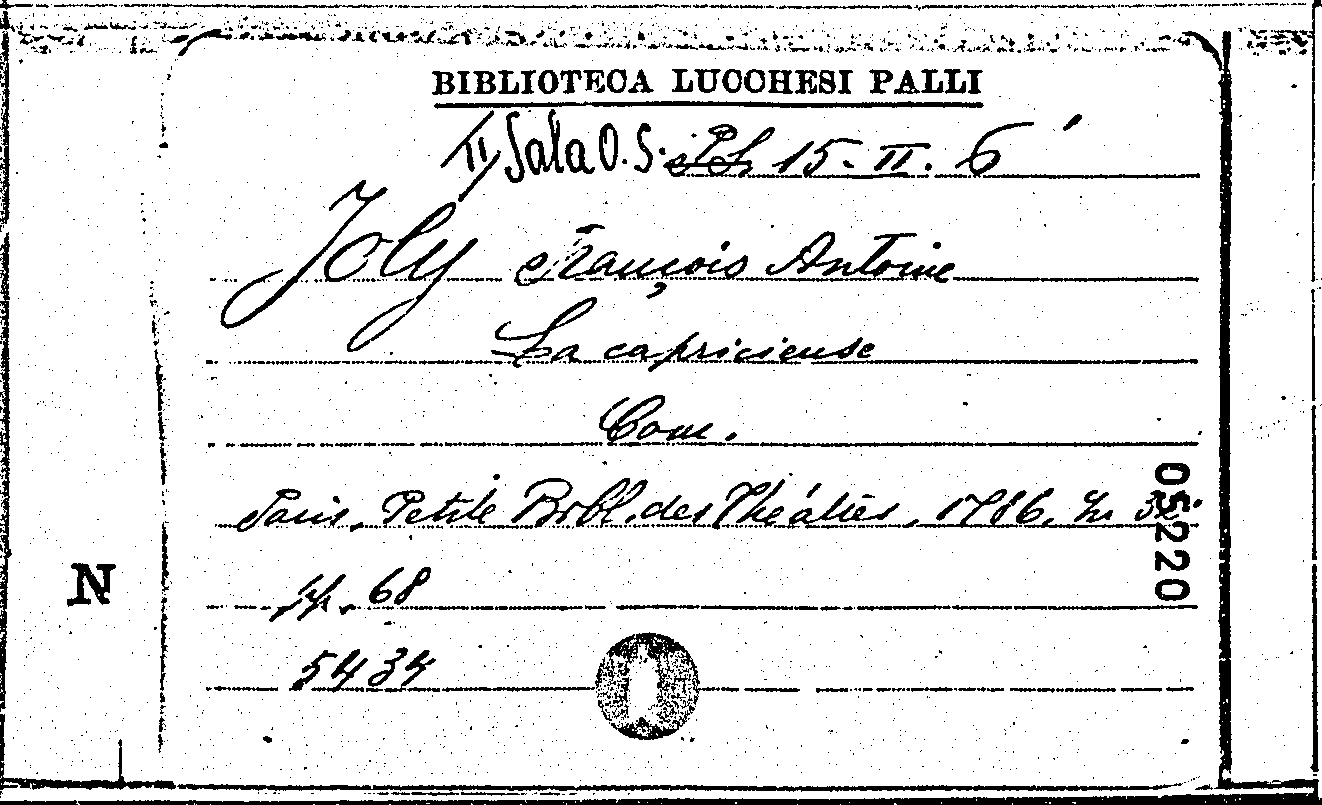 BIBLIOTECA LUCCHESI PALLI
II Sala O. S. 15-II. 6
Joly François Antoine
La capricieuse
Com.
Paris, Petite Bibl. des Théâtres, 1786. In 32°
pp. 68
5434
05220
N